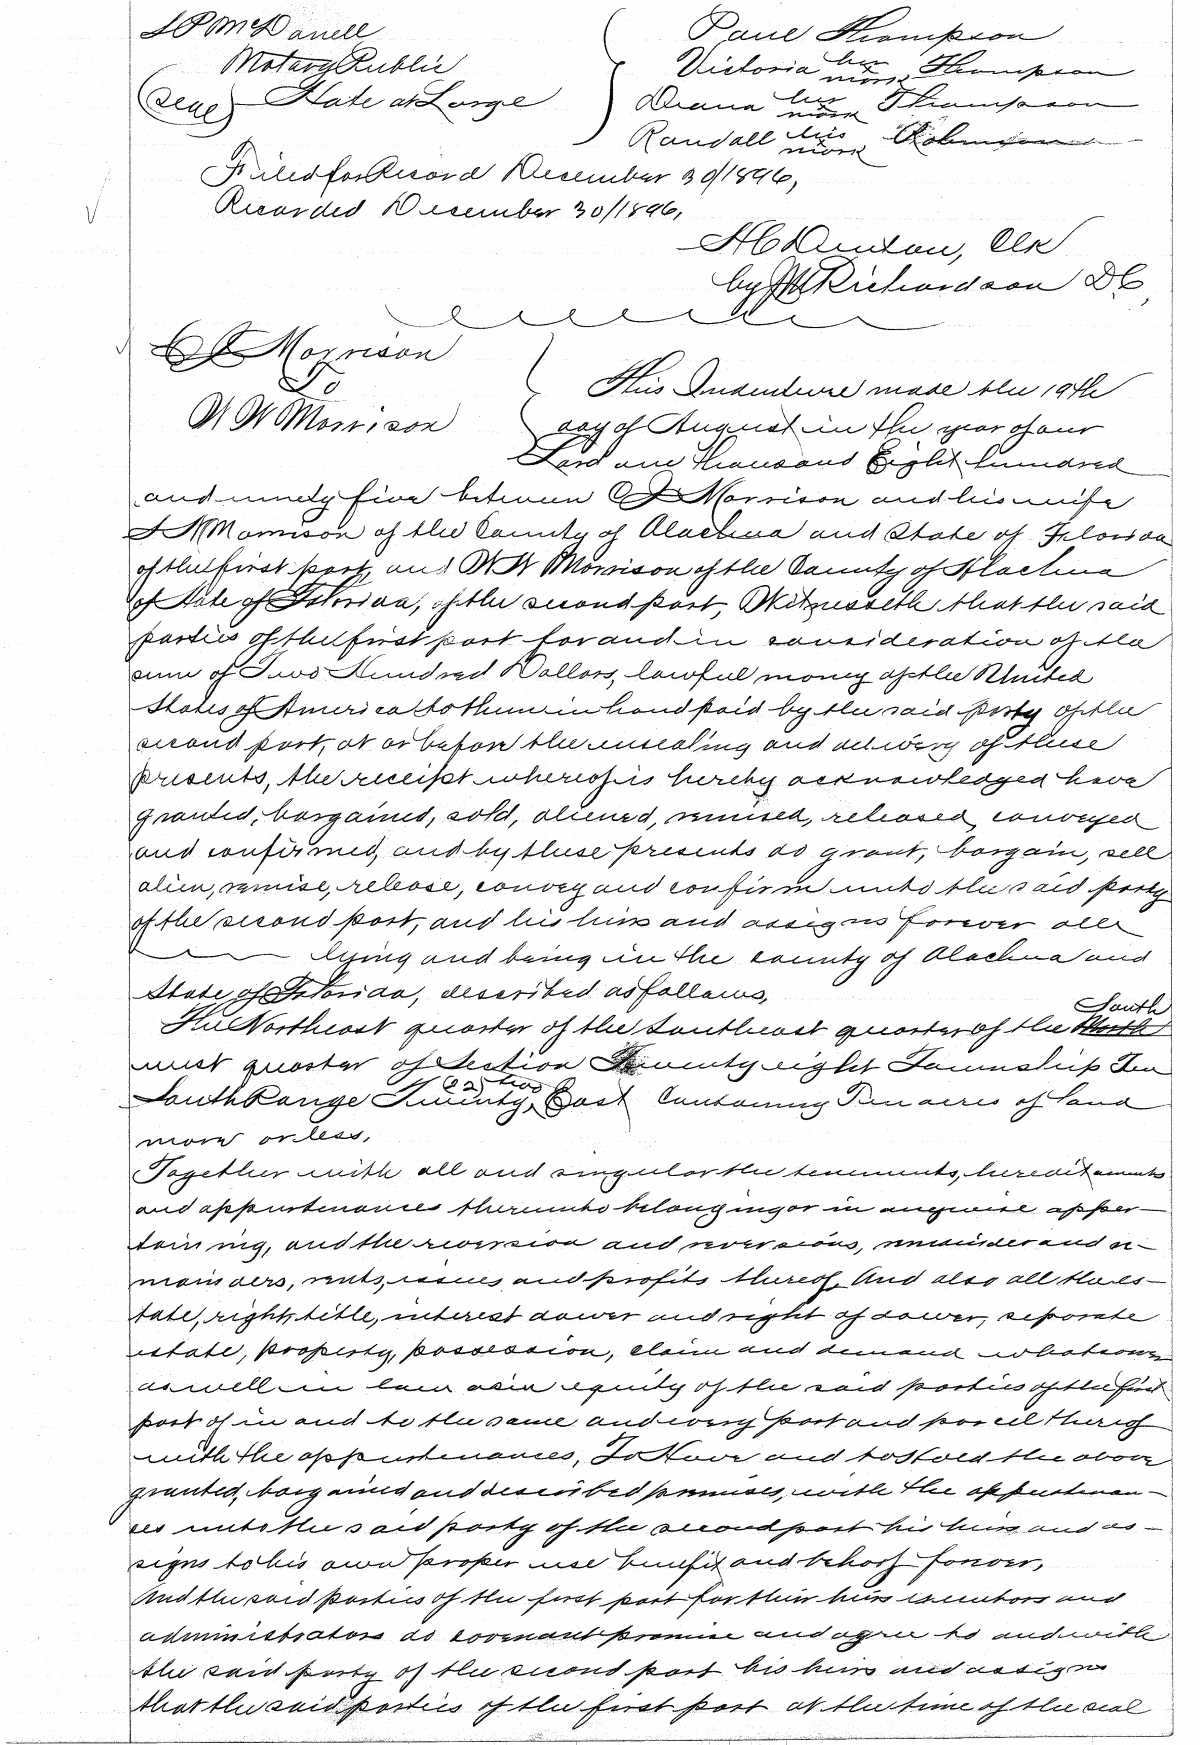 J P McDanell
Notary Public
(Seal) State at Large
Paul Thompson
Victoria her mark Thompson
Diana her mark Thompson
Randall his mark Robinson
Filed for Record December 30/1896,
Recorded December 30/1896,
H C Denton, Clk
by Richardson D C
Morrison
To
W W Morrison
This Indenture made the 19th
day of August in the year of our
Lord one thousand Eight hundred
and ninety five between C J Morrison and his wife
Morrison of the County of Alachua and State of Florida
of the first part, and W W Morrison of the County of Alachua
of State of Florida, of the second part, Witnesseth that the said
parties of the first part for and in consideration of the
sum of Two Hundred Dollars, lawful money of the United
States of America to them in hand paid by the said party of the
second part, at or before the ensealing and delivery of these
presents, the receipt whereof is hereby acknowledged have
granted, bargained, sold, aliened, remised, released, conveyed
and confirmed, and by these presents do grant, bargain, sell
alien, remise, release, convey and confirm unto the said party
of the second part, and his heirs and assigns forever all
lying and being in the county of Alachua and
State of Florida, described as follows,
The Northeast quarter of the Southeast quarter of the North South
west quarter of Section Twenty eight Township Ten
South Range Twenty, 22 two East Containing Ten acres of land
more or less,
Together with all and singular the tenements, hereditaments
and appurtenances thereunto belonging or in anywise apper-
taining, and the reversion and reversions, remainder and re-
mainders, rents, issues and profits thereof, And also all the es-
tate, right, title, interest dower and right of dower, separate
estate, property, possession, claim and demand whatsoever
as well in law as in equity of the said parties of the first
part of in and to the same and every part and parcel thereof
with the appurtenances, To Have and to Hold the above
granted, bargained and described premises, with the appurtenan-
ces unto the said party of the second part his heirs and as-
signs to his own proper use benefit and behoof forever,
And the said parties of the first part for their heirs executors and
administrators do covenant promise and agree to and with
the said party of the second part his heirs and assigns
that the said parties of the first part at the time of the seal